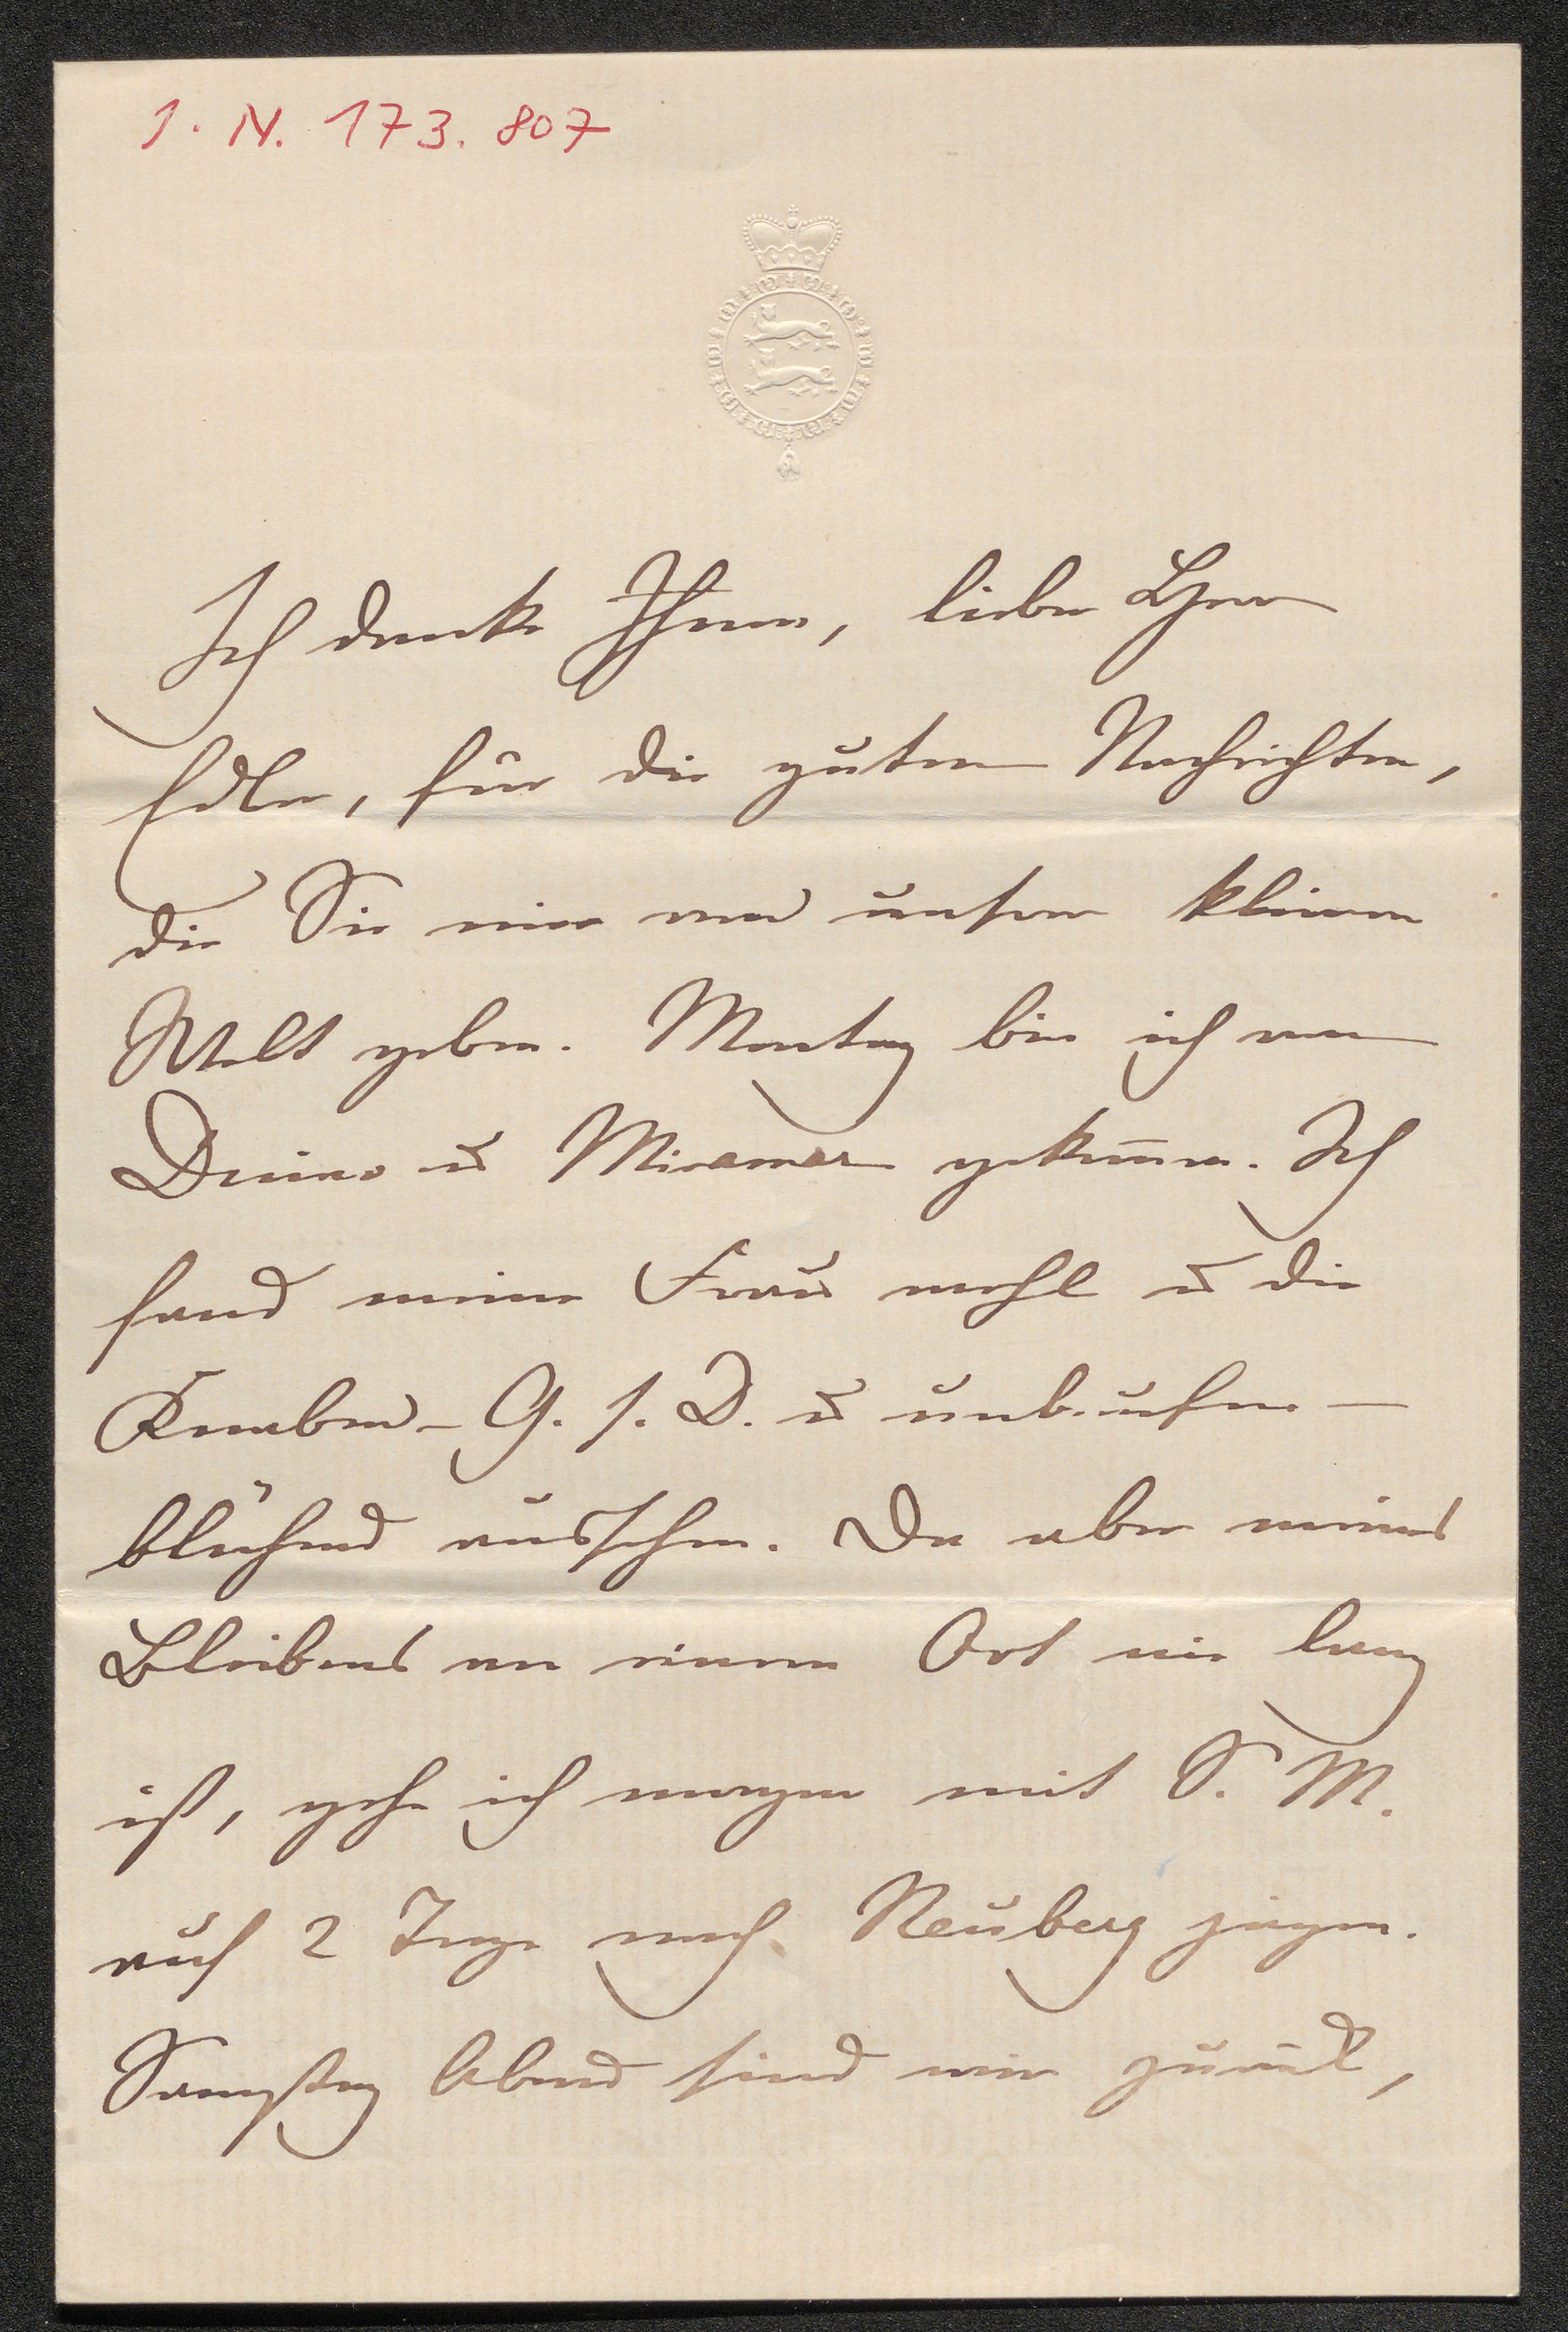 I. N. 173.807
Ich danke Ihnen, lieber Herr
Edler, für die guten Nachrichten,
die Sie mir von unserer kleinen
Welt geben. Montag bin ich von
Duino u Miramar gekom̄en. Ich
fand meine Frau wohl u die
Knaben – G. s. D. u unberufen –
blühend aussehen. Da aber meines
Bleibens an einem Ort nie lang
ist, gehe ich morgen mit S. M.
auf 2 Tage nach Neuberg jagen.
Samstag Abend sind wir zurück,